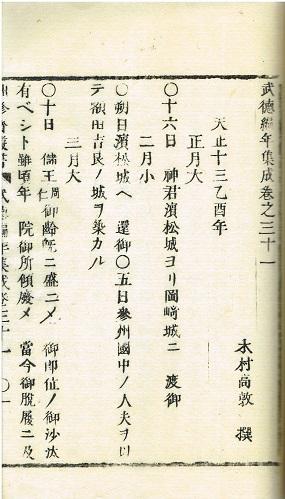 武德編年集成卷之三十一
木村高敦 撰
天正十三乙酉年
正月大
〇十六日 神君濱松城ヨリ岡﨑城ニ 渡御
二月小
〇朔日濱松城ヘ 還御〇五日參州國中ノ人夫ヲ以
テ額田吉良ノ城ヲ築カル
三月大
〇十日 儲王周仁御齡旣ニ盛ニメ 御卽位ノ御沙汰
有ベシト雖頃年 院御所傾廢メ 當今御脫屣ニ及
武德編年集成卷三十一 〇一